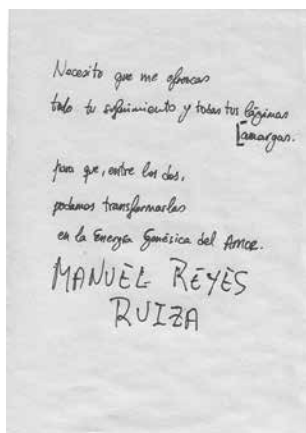 Necesito que me ofrezcas
todo tu sufrimiento y todas tus lágrimas
[amargas.
para que, entre los dos,
podamos transformarlas
en la Energía Genésica del Amor.
MANUEL REYES
RUIZA